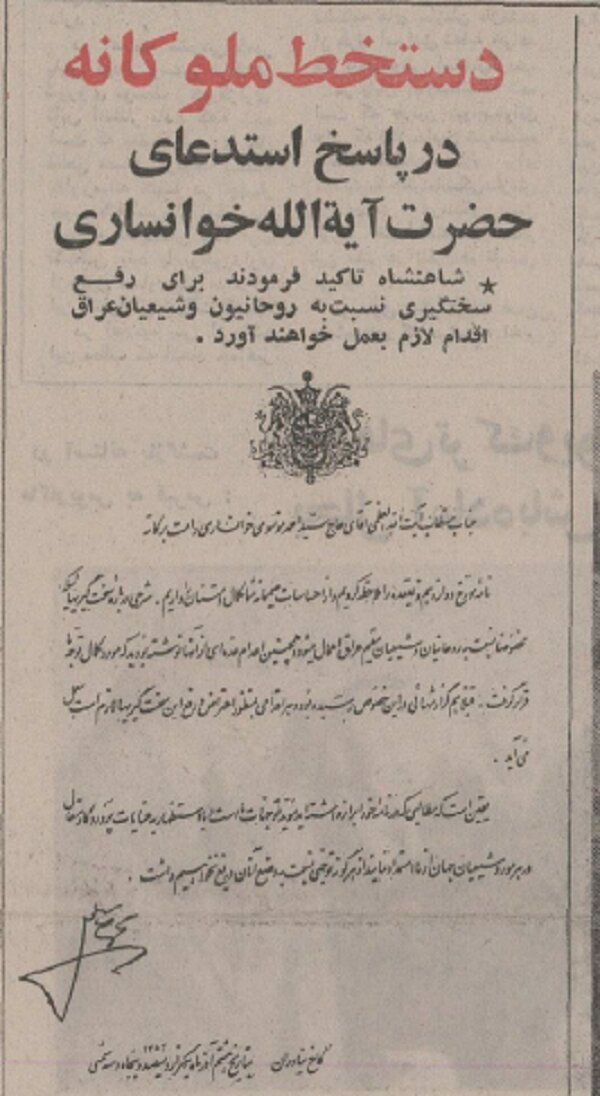 دستخط ملوکانه
در پاسخ استدعای
حضرت آیةالله خوانساری
★ شاهنشاه تاکید فرمودند برای رفع
سختگیری نسبت به روحانیون و شیعیان عراق
اقدام لازم بعمل خواهند آورد.
جناب مستطاب آیت الله العظمی آقای حاج سید احمد موسوی خوانساری دامت برکاته
نامه مورخ دوازدهم ذیقعده را ملاحظه کردیم و از احساسات صمیمانه شما کمال امتنان را داریم. شرحی درباره سخت گیریهائیکه
نسبت به روحانیان و شیعیان مقیم عراق اعمال میشود و همچنین اعدام عده‌ای از آنها نوشته بودید که مورد کمال توجه ما
قرار گرفت. قبلا هم گزارشهائی در این خصوص رسیده بود و هر اقدامی بمنظور اعتراض و رفع این سخت گیریها لازم است بعمل
می‌آید.
یقین است که مطالبی که در نامه خود ابراز داشته‌اید مؤید توجهات ما است با استظهار به عنایات پروردگار متعال
در هر مورد شیعیان جهان از ما استمداد نمایند از هر گونه توجهی نسبت به وضع آنان دریغ نخواهیم داشت.
کاخ نیاوران بتاریخ هشتم آذر ماه یکهزار و سیصد و پنجاه و سه شمسی